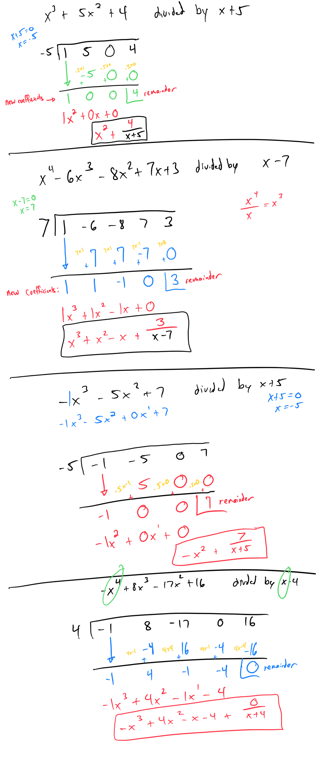 x³ + 5x² + 4 divided by x+5
x+5=0
x=-5
-5 | 1 5 0 4
-5 0 0
new coefficients → 1 0 0 | 4 remainder
1x² + 0x + 0
x² + 4/(x+5)
x⁴ - 6x³ - 8x² + 7x + 3 divided by x-7
x-7=0
x=7
x⁴/x = x³
7 | 1 -6 -8 7 3
7 7 -7 0
new coefficients: 1 1 -1 0 | 3 remainder
1x³ + 1x² - 1x + 0
x³ + x² - x + 3/(x-7)
-1x³ - 5x² + 7 divided by x+5
-1x³ - 5x² + 0x¹ + 7
x+5=0
x=-5
-5 | -1 -5 0 7
5 0 0
-1 0 0 | 7 remainder
-1x² + 0x¹ + 0
-x² + 7/(x+5)
-x⁴ + 8x³ - 17x² + 16 divided by x-4
4 | -1 8 -17 0 16
-4 16 -4 -16
-1 4 -1 -4 | 0 remainder
-1x³ + 4x² - 1x¹ - 4
-x³ + 4x² - x - 4 + 0/(x+4)